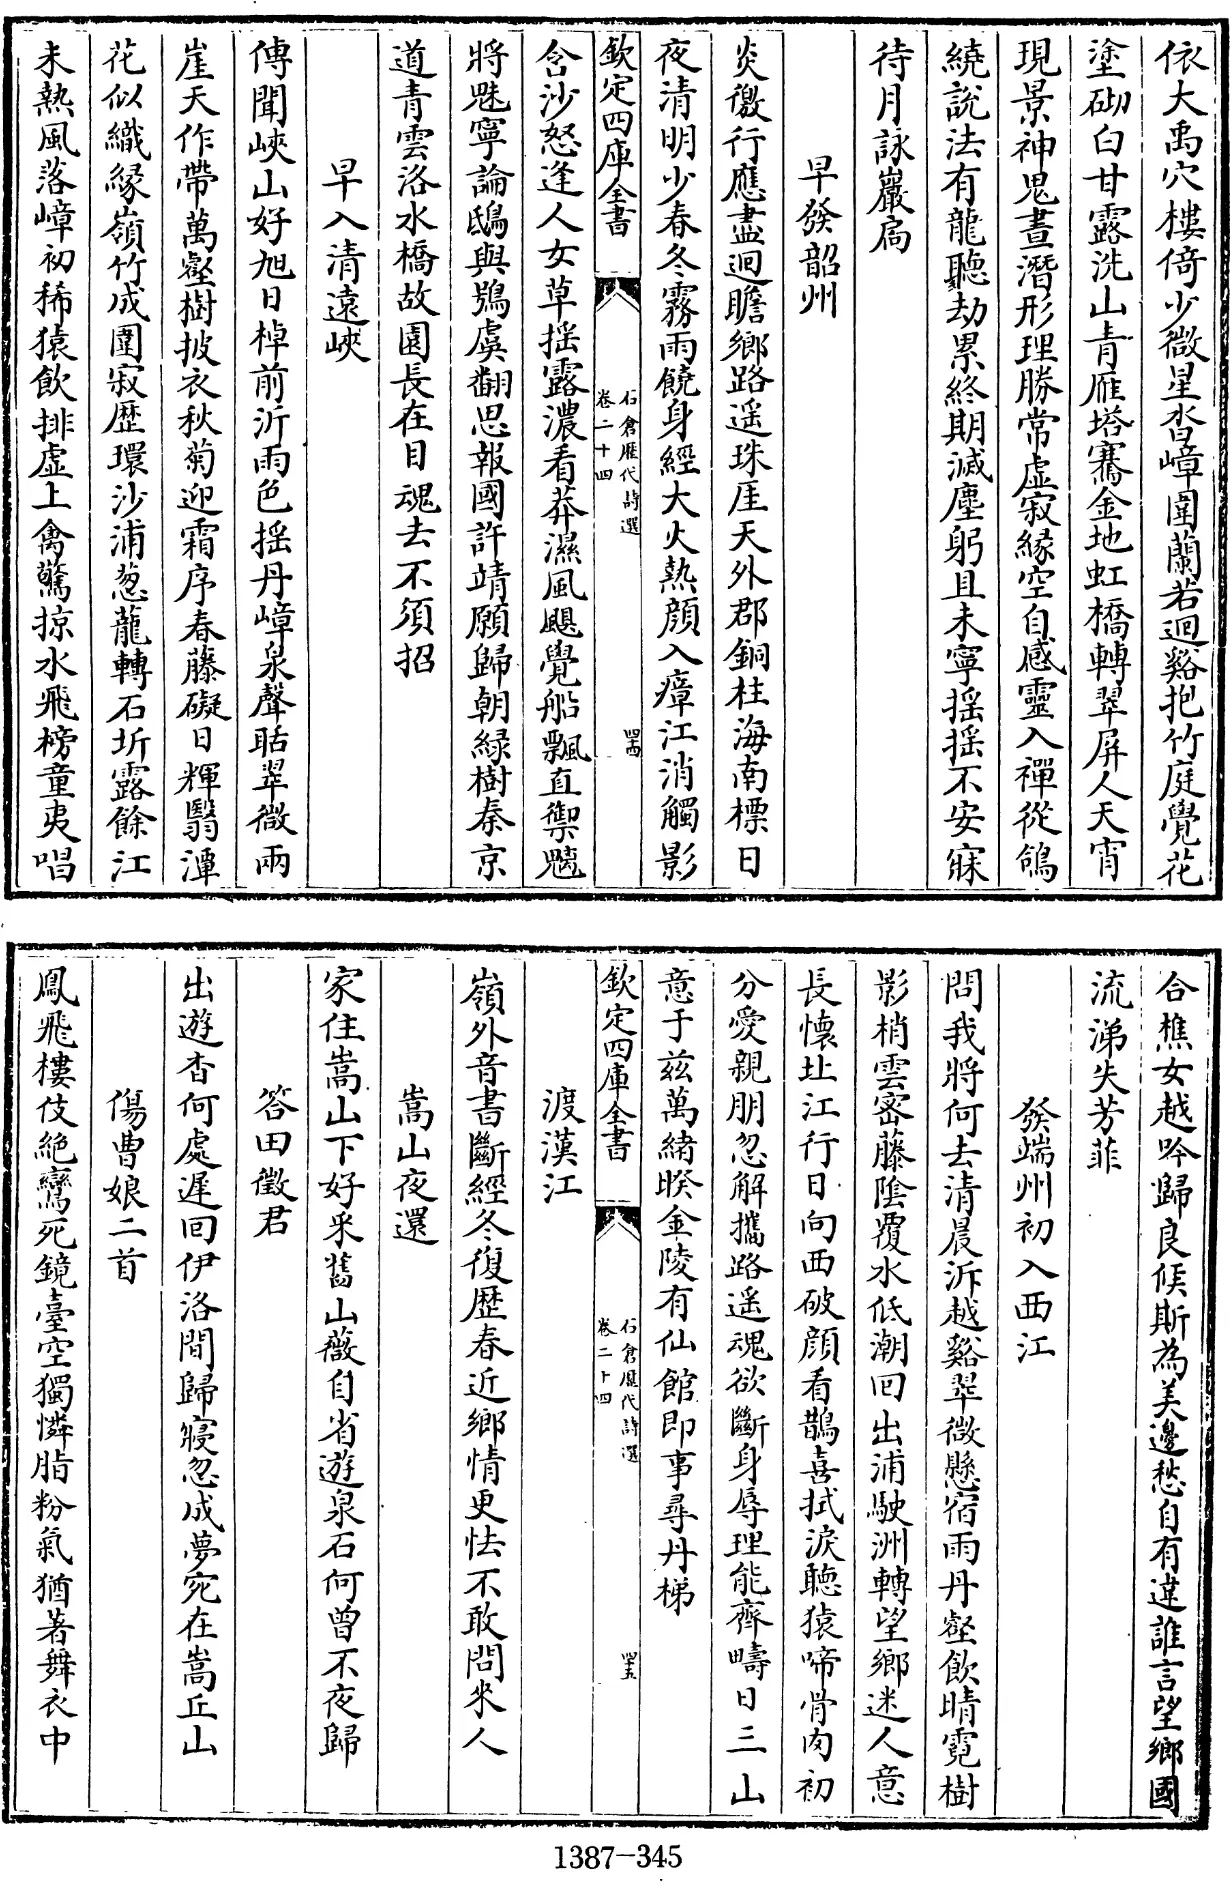 依大禹穴樓倚少微星沓嶂圍蘭若迴谿抱竹庭覺花
塗砌白甘露洗山青雁塔騫金地虹橋轉翠屏人天宵
現景神鬼晝潛形理勝常虛寂緣空自感靈入禪從鴿
繞說法有龍聽劫累終期滅塵躬且未寧搖搖不安寐
待月詠巖扃
早發韶州
炎徼行應盡迴瞻鄉路遥珠厓天外郡銅柱海南標日
夜清明少春冬霧雨饒身經大火熱顔入瘴江消觸影
欽定四庫全書
石倉歷代詩選
卷二十四
四十四
含沙怒逢人女草揺露濃看莽濕風颶覺船飄直禦魑
將魅寧論鴟與鴞虞翻思報國許靖願歸朝綠樹秦京
道青雲洛水橋故園長在目魂去不須招
早入清遠峽
傳聞峽山好旭日棹前沂雨色揺丹嶂泉聲聒翠微兩
崖天作帶萬壑樹披衣秋菊迎霜序春藤礙日輝翳潭
花似織緣嶺竹成圍寂歴環沙浦葱蘢轉石圻露餘江
未熱風落嶂初稀猿飲排虛上禽驚掠水飛榜童夷唱
合樵女越吟歸良候斯為美邊愁自有違誰言望鄉國
流涕失芳菲
發端州初入西江
問我將何去清晨泝越谿翠微懸宿雨丹壑飲晴霓樹
影梢雲密藤陰覆水低潮回出浦駛洲轉望鄉迷人意
長懷北江行日向西破顔看鵲喜拭淚聽猿啼骨肉初
分愛親朋忽解攜路遥魂欲斷身辱理能齊疇日三山
意于兹萬緒暌金陵有仙館即事尋丹梯
欽定四庫全書
石倉歷代詩選
卷二十四
四十五
渡漢江
嶺外音書斷經冬復歴春近鄉情更怯不敢問來人
嵩山夜還
家住嵩山下好采舊山薇自省遊泉石何曾不夜歸
答田徵君
出遊杳何處遲回伊洛間歸寢忽成夢宛在嵩丘山
傷曹娘二首
鳳飛樓伎絶鸞死鏡臺空獨憐脂粉氣猶著舞衣中
1387-345